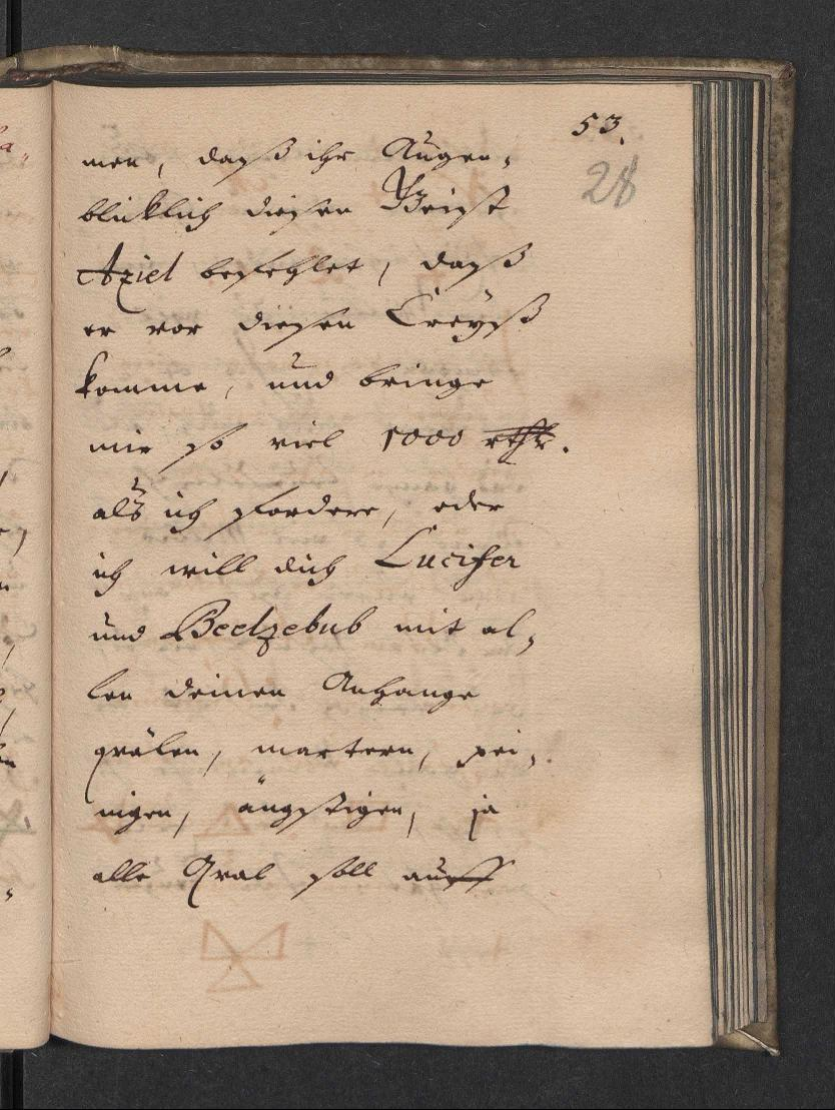 53.
28
men, daß ihr Augen-
blicklich diesen Geist
Aziel befehlet, daß
er vor diesen Creÿß
komme, und bringe
mir so viel 1000 rthlr.
alß ich fordere, oder
ich will dich Lucifer
und Beelzebub mit al-
len deinen Anhange
qvälen, martern, pei-
nigen, ängstigen, ja
alle Qval soll auff